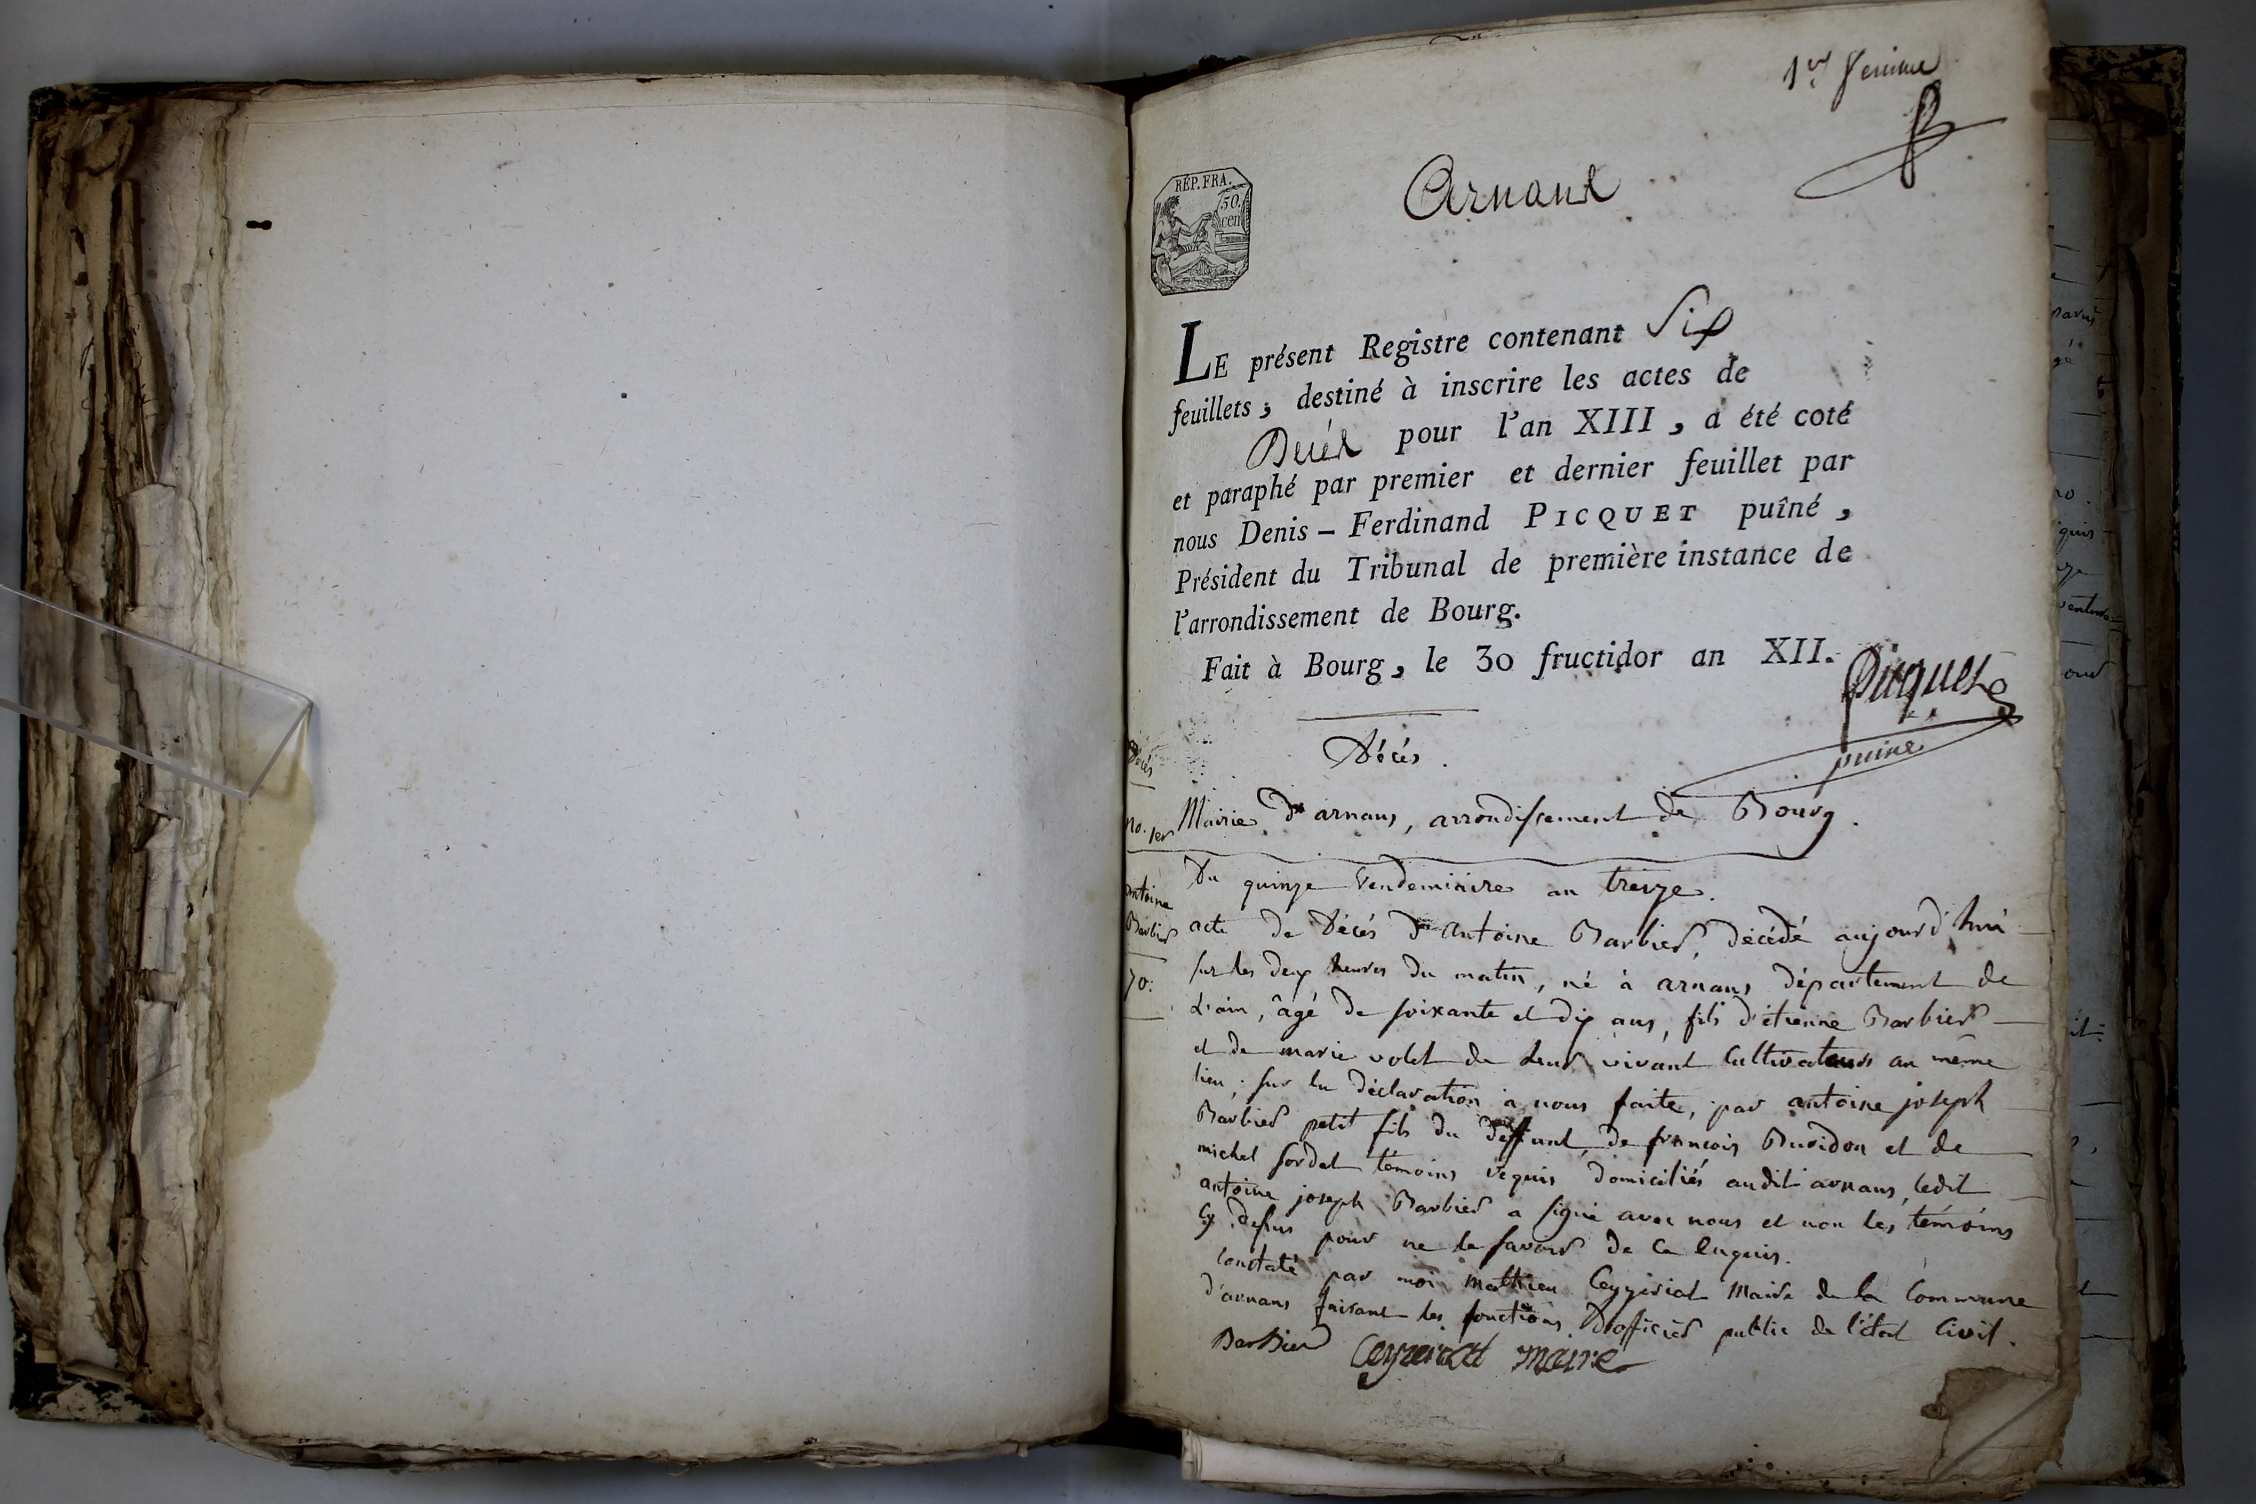 1er feuillet
Arnans
RÉP. FRA.
50.
cen
LE présent Registre contenant Six
feuillets, destiné à inscrire les actes de
Décès pour l'an XIII, a été coté
et paraphé par premier et dernier feuillet par
nous Denis-Ferdinand PICQUET puîné,
Président du Tribunal de première instance de
l'arrondissement de Bourg.
Fait à Bourg, le 30 fructidor an XII.
Picquet
puiné
Décès
Décès.
no. 1er
Mairie d'arnans, arrondissement de Bourg.
Du quinze Vendemiaire an treize.
antoine
Barbier
70.
acte de Décés d'antoine Barbier, décédé aujourd'hui
sur les deux heures du matin, né à arnans département de
L'ain, âgé de soixante et dix ans, fils d'étienne Barbier
et de marie volet de leur vivant Cultivateurs au même
lieu ; sur la déclaration à nous faite, par antoine joseph
Barbier petit fils du deffunt, de francois Buridon et de
michel sordet témoins requis domiciliés audit arnans, ledit
antoine joseph Barbier a signé avec nous et non les témoins
cy dessus pour ne le savoir de ce enquis.
Constaté par moi mathieu Ceyzeriat Maire de la Commune
d'arnans faisant les fonctions d'officier public de l'état Civil.
Barbier Ceyzeriat maire